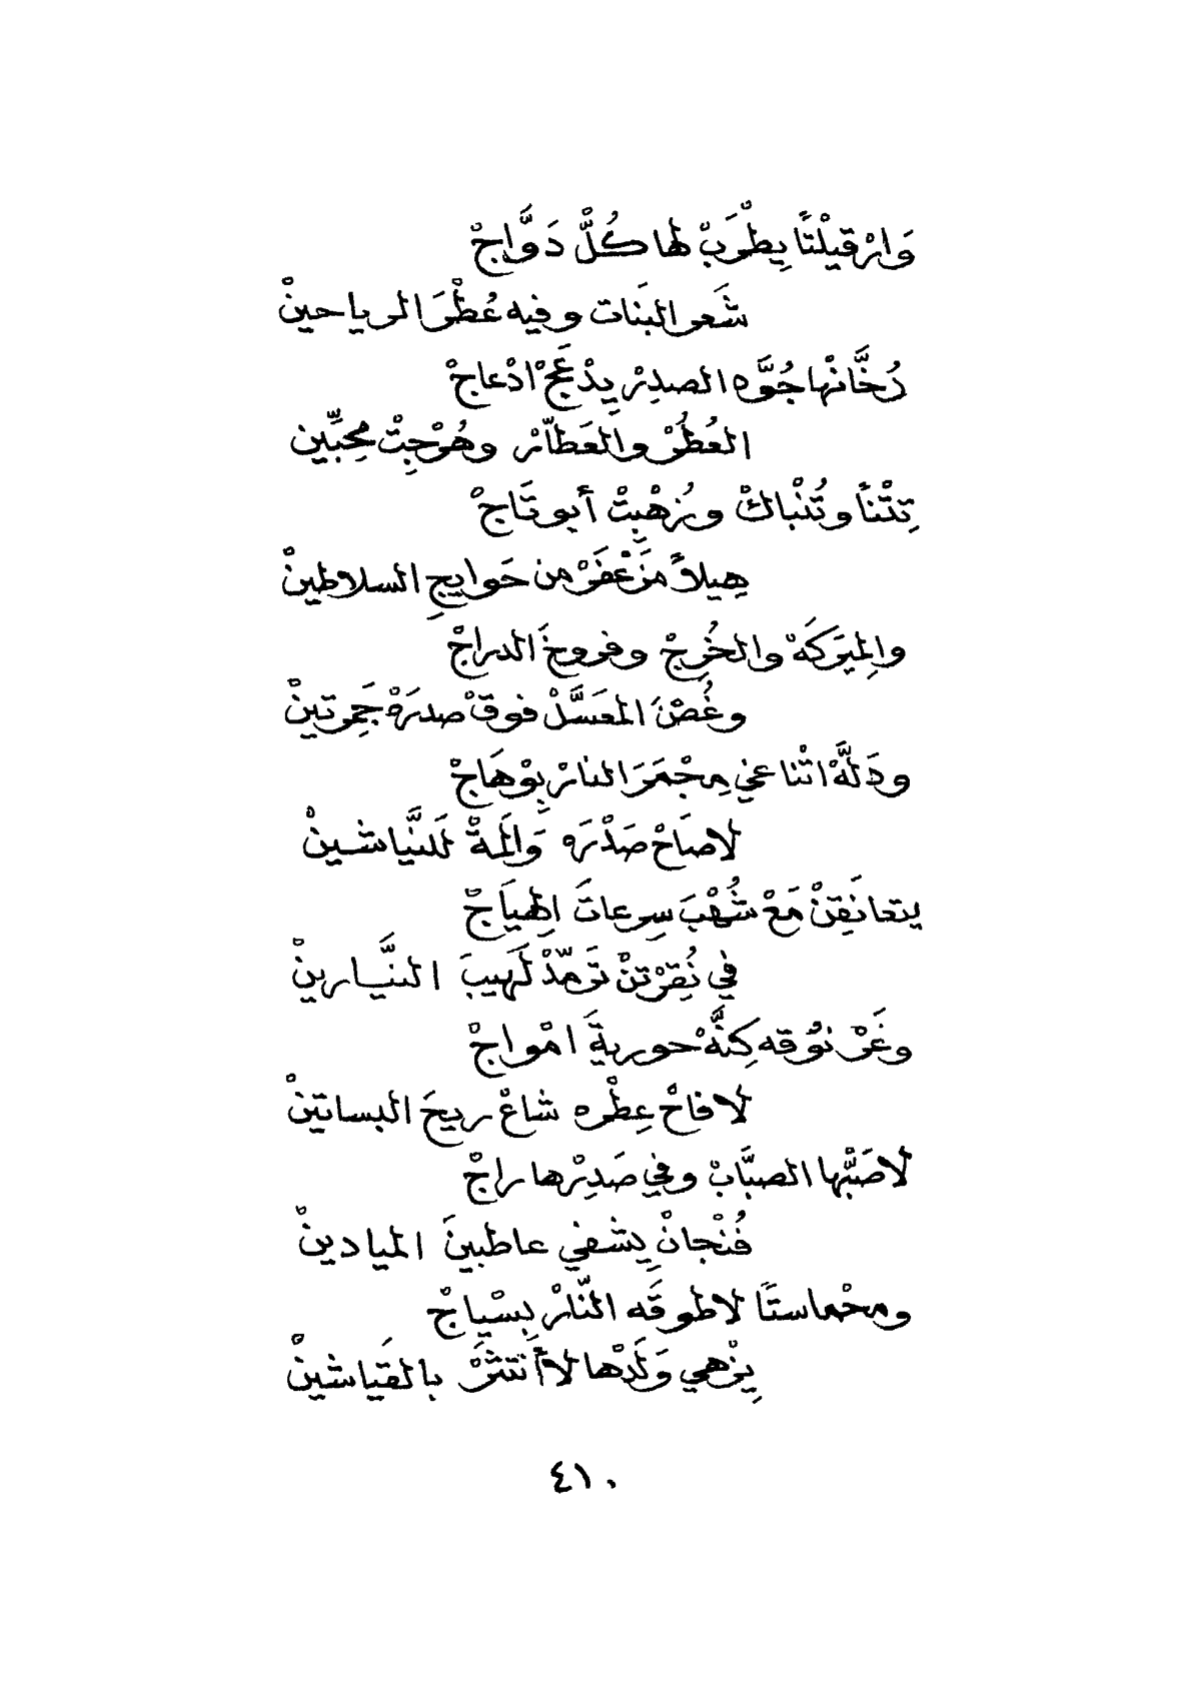 وَارْقيلْتاً يِطْرَبْ لها كُلَّ دَوَّاجْ
شَعر البنَات وفيه عُطْرَ الرياحينْ
دُخَّانْها جُوَّه الصدِرْ يِدْعَجْ ادْعاجْ
العُطُرْ والعَطاّرْ وهُرْجِتْ مِحِبِّين
تِتْناً وتُنْباكْ وزُهْبِتْ أبو تَاجْ
هِيلاً مزَعْفَرْ من حَوايجِ السلاطينْ
والِميَركَهْ والخُرِجْ وفروخَ الدراجْ
وغُصْنَ المعَسَّلْ فوقْ صدرَهْ جَمِرتينْ
ودَلَّهْ اثْنا عني مِجْمَرَ النارْ بِوْهَاجْ
لاصَاحْ صَدْرَه وَالَمهْ للنَّياشينْ
يتعانَقِنْ مَعْ شُهْبَ سِرعاتَ الِهيَاجْ
في نُقِرْتِنْ تَرمّدْ لَهيبَ النَّيارينْ
وغَرْ نوْقه كِنَّهْ حوريةَ امْواجْ
لافاحْ عِطْره شاعْ ريحَ البساتينْ
لاصَبّْها الصبَّابْ وفي صَدِرْها راجْ
فُنْجانْ يِشفي عاطبينَ الميادينْ
ومحْماستَا لاطوقَه النّارْ بِسْياجْ
يِزْهي وَلَدْها لاأنتثَرْ بالقَياشينْ
٤١٠